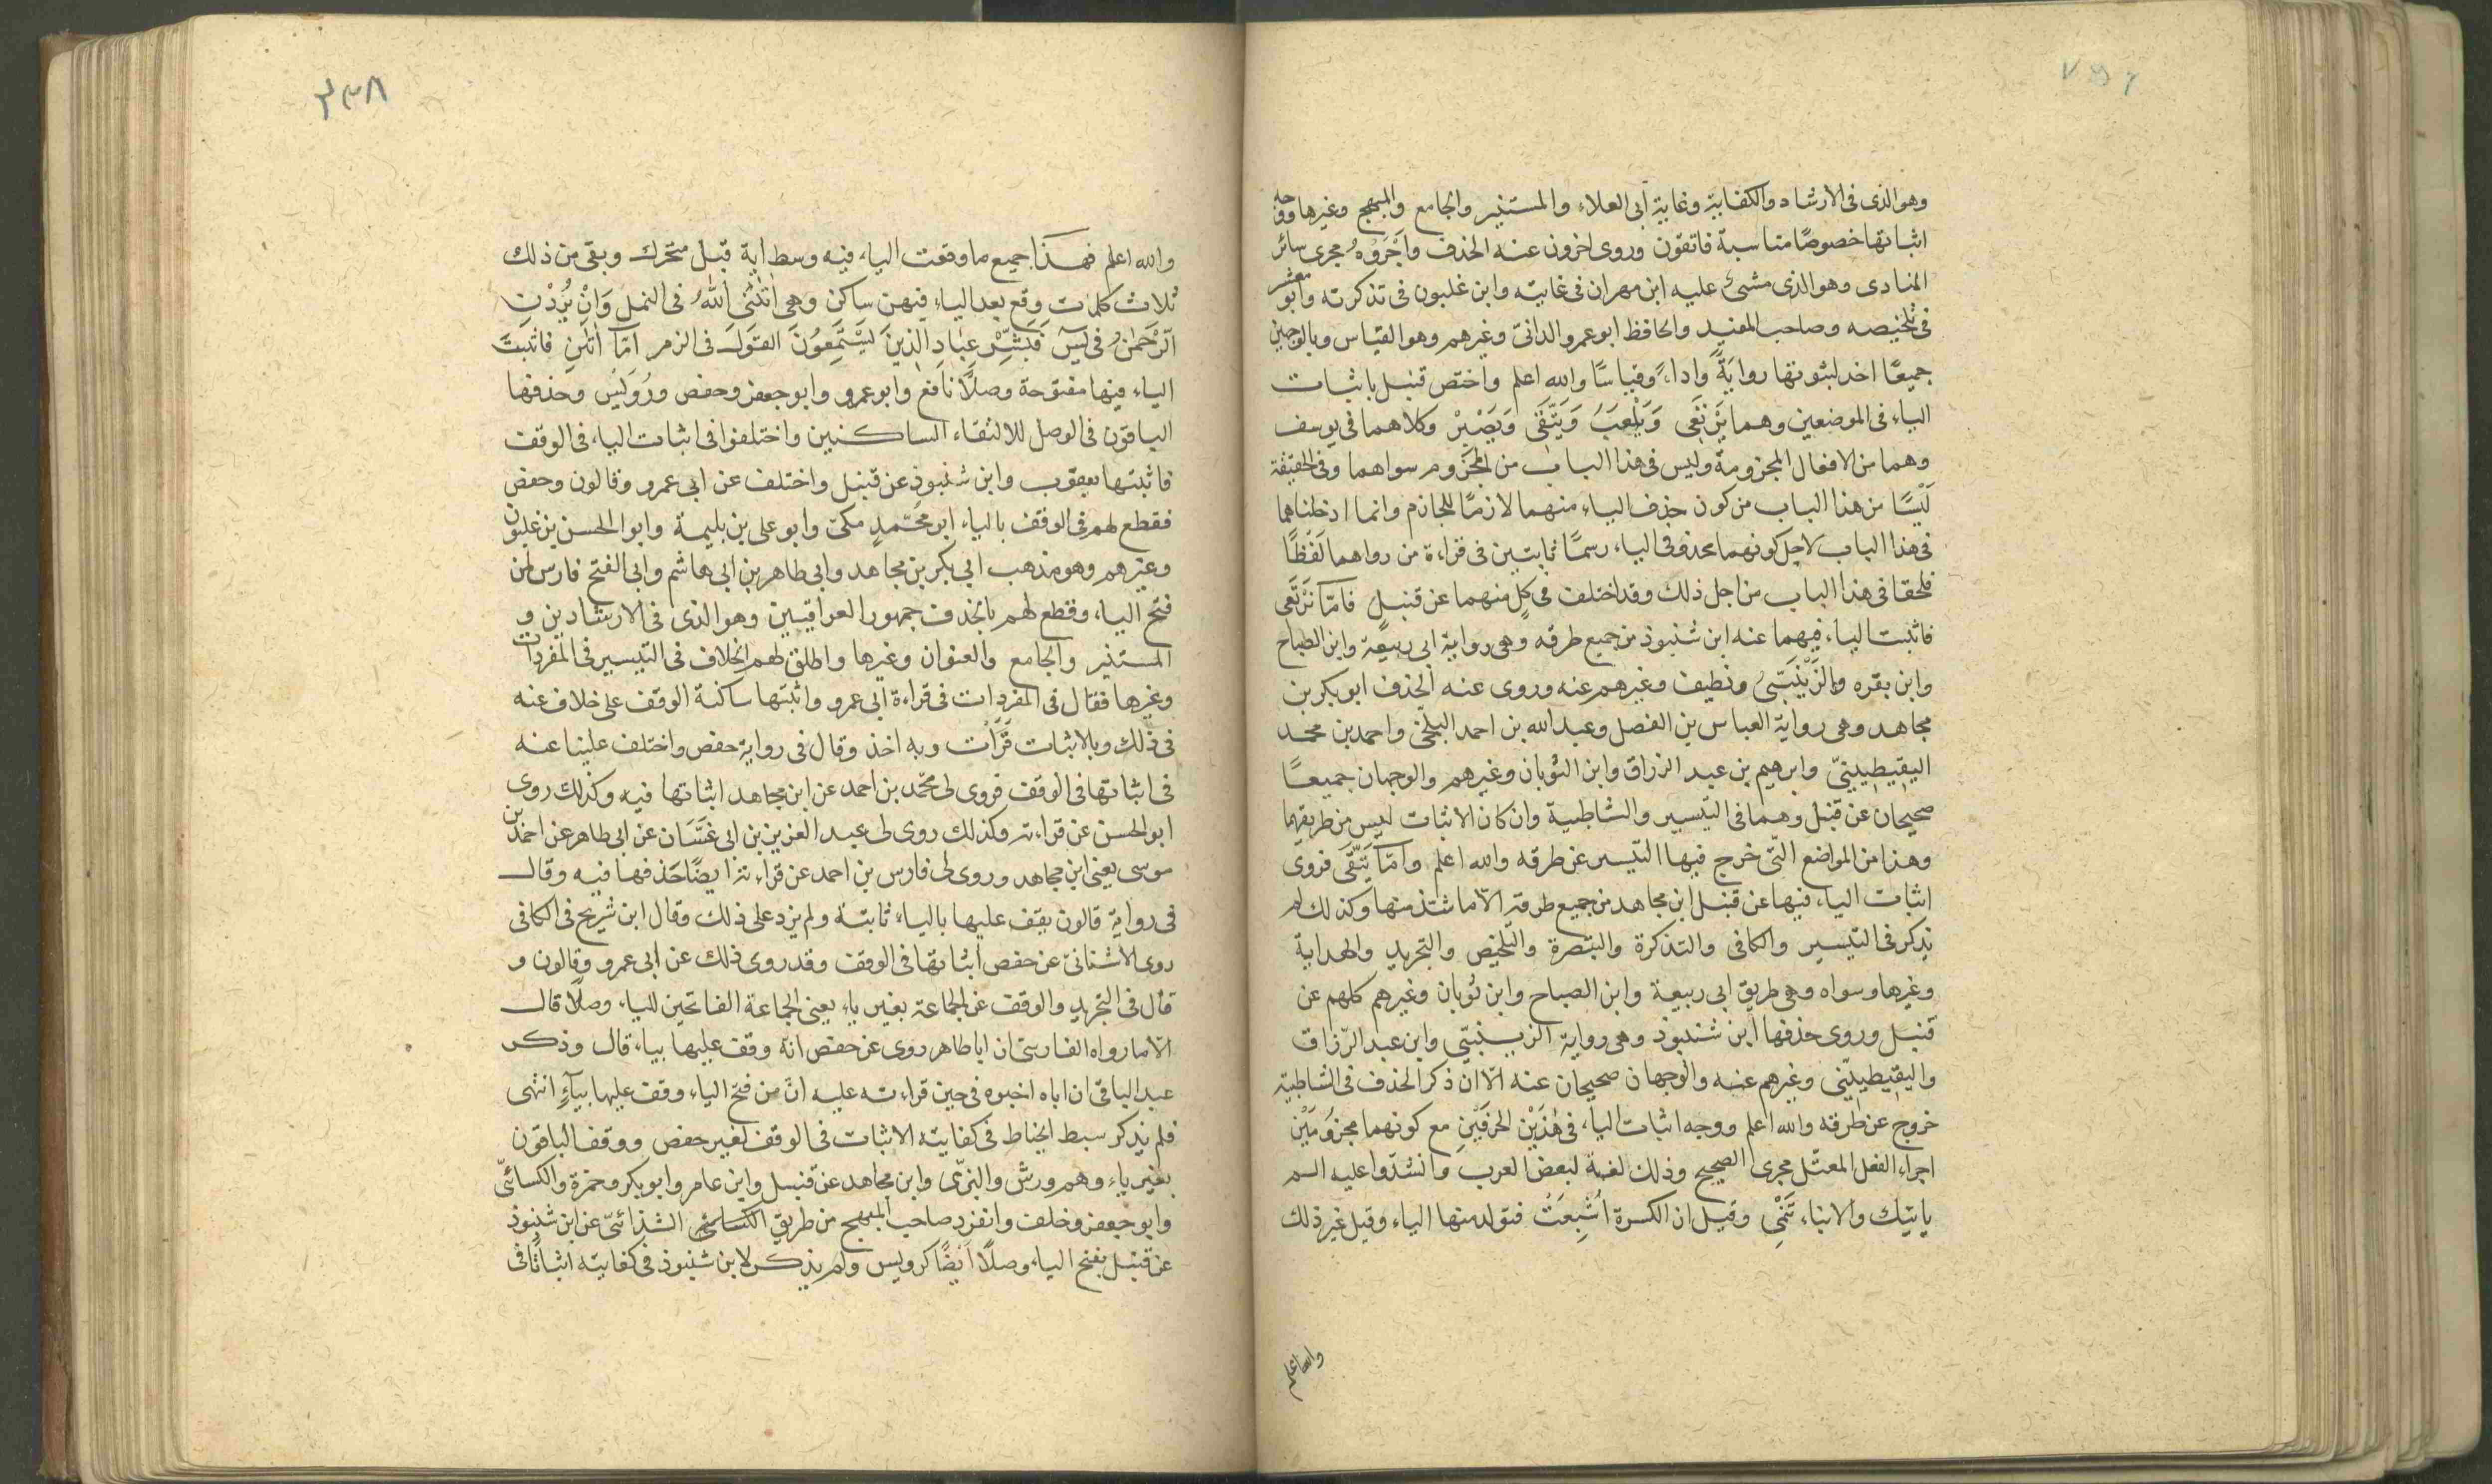 وهو الذى فى الارشاد والكفاية وغاية أبى العلاء والمستنير والجامع والمبهج وغيرها ووجه
اثباتها خصوصًا مناسبة فاتقون وروى اخرون عنه الحذف وأَجْرَوْهُ مجرى سائر
المنادى وهو الذى مشىٰ عليه ابن مهران فى غايته وابن غلبون فى تذكرته وأبو معشر
فى تلخيصه وصاحب المفيد والحافظ ابو عمرو الدانىّ وغيرهم وهو القياس وبالوجهين
جميعًا اخذ لثبوتها روايَةً وَاداءً وقياسًا والله اعلم واختص قنبل باثبات
الياء فى الموضعين وهما يَرْتَعِى وَيَلْعَبَ وَيَتَّقِى وَيَصْبِرْ وكلاهما فى يوسف
وهما من الافعال المجزومة وليس فى هذا الباب من المجزوم سواهما وفى الحقيقة
لَيْسَا من هذا الباب من كون حذف الياء منهما لازمًا للجازم وانما ادخلناهما
فى هذا الباب لاجل كونهما محذوفى الياء رسمًا ثابتين فى قراءة من رواهما لَفْظًا
فلحقا فى هذا الباب من اجل ذلك وقد اختلف فى كلٍ منهما عن قنبلٍ فامّا نَرْتَعِى
فاثبت الياء فيهما عنه ابن شنبوذ من جميع طرقه وهى رواية ابى ربيعة وابن الصباح
وابن بقره والزَّيْنَبِىُّ ونظيف وغيرهم عنه وروى عنه الحذف ابو بكر بن
مجاهد وهى رواية العباس بن الفضل وعبد الله بن احمد البلخى واحمد بن محمد
اليقيطينىّ وابرهيم بن عبد الرزاق وابن الثوبان وغيرهم والوجهان جميعًا
صحيحان عن قنبل وهما فى التيسير والشاطبية وان كان الاثبات ليس من طريقهما
وهذا من المواضع التّى خرج فيها التيسير عن طرقه والله اعلم وَامّا يَتَّقِى فروى
اثبات الياء فيها عن قنبل ابن مجاهد من جميع طرقه الّا ما شذ منها وكذلك لم
يذكر فى التيسير والكافى والتذكرة والتبصرة والتلخيص والتجريد والهداية
وغيرها وسواه وهى طريق ابى ربيعة وابن الصباح وابن ثوبان وغيرهم كلهم عن
قنبل وروى حذفها ابن شنبوذ وهى رواية الزينبىّ وابن عبد الرّزاق
واليقيطينّى وغيرهم عنه والوجهان صحيحان عنه الّا انّ ذكر الحذف فى الشاطبية
خروج عن طُرقه والله اعلم ووجه اثبات الياء فى هٰذَيْنِ الحَرْفَيْنِ مع كونهما مجزومَيْنِ
اجراء الفعل المعتّل مجرى الصحيح وذلك لغة لبعض العرب وانشدّوا عليه الم
يايتيك والانباء تَنْمِى وقيل ان الكسرة أُشْبِعَتْ فتولد منها الياء وقيل غير ذلك
والله اعلم
٣٣٨
والله اعلم فهـٰذا جميع ما وقعت الياء فيه وسط اٰية قبل متحرك وبقى من ذلك
ثلاث كلمات وقع بعد الياء فيهن ساكن وهى اٰتٰنِىَ اللّٰهُ فى النمل وَانْ يُرِدْنِ
الرَّحْمٰنُ فى يٰسٓ فَبَشِّرْ عِبَادِ الَّذِينَ يَسْتَمِعُونَ القَوْلَ فى الزمر امّا اٰتٰنِ فاثبت
الياء فيها مفتوحة وصلًا نافع وابو عمرو وابو جعفر وحفص ورُوَيْس وحذفها
الباقون فى الوصل للالتقاء الساكنين واختلفوا فى اثبات الياء فى الوقف
فاثبتها يعقوب وابن شنبوذ عن قنبل واختلف عن ابى عمرو وقالون وحفص
فقطع لهم فى الوقف بالياء ابو محمّدٍ مكىّ وابو على بن بليمة وابو الحسن بن غلبون
وغيرهم وهو مذهب ابى بكر بن مجاهد وابى طاهر بن ابى هاشم وابى الفتح فارس لمن
فتح الياء وقطع لهم بالحذف جمهور العراقيين وهو الذى فى الارشادين و
المستنير والجامع والعنوان وغيرها واطلق لهم الخلاف فى التيسير فى المفردات
وغيرها فقال فى المفردات فى قراءة ابى عمرو واثبتها ساكنة الوقف على خلاف عنه
فى ذلك وبالاثبات قَرَأْت وبه اخذ وقال فى رواية حفص واختلف علينا عنه
فى اثباتها فى الوقف فروى لى محمّد بن احمد عن ابن مجاهد اثباتها فيه وكذلك روى
ابو الحسن عن قراءته وكذلك روى لى عبد العزيز بن ابى غَسَّان عن ابى طاهر عن احمد بن
موسى يعنى ابن مجاهد وروى لى فارس بن احمد عن قراءته ايضًا حَذفها فيه وقال
فى رواية قالون يقف عليها بالياء ثابتة ولم يزد على ذلك وقال ابن شريح فى الكافى
روى الاشنانىّ عن حفص اثباتها فى الوقف وقد روى ذلك عن أبى عمرو وقالون و
قال فى التجريد والوقف عن الجماعة بغير ياء يعنى الجماعة الفاتحين للياء وصلًا قال
الّا ما رواه الفارسى ان ابا طاهر روى عن حفص انّه وقف عليها بياء قال وذكر
عبد الباقى ان اباه اخبره فى حين قراءته عليه انَّ من فتح الياء وقف عليها بيآءٍ انتهى
فلم يذكر سبط الخياط فى كفايته الاثبات فى الوقف لغير حفص ووقف الباقون
بغير ياء وهم ورش والبزّى وابن مجاهد عن قنبل وابن عامر وابو بكر وحمزة والكسائىّ
وابو جعفر وخلف وانفرد صاحب المبهج من طريق الكسائى الشذائىّ عن ابن شنبوذ
عن قنبل بفتح الياء وصلًا أيضًا كرويس ولم يذكر لابن شنبوذ فى كفايته اثباتًا فى